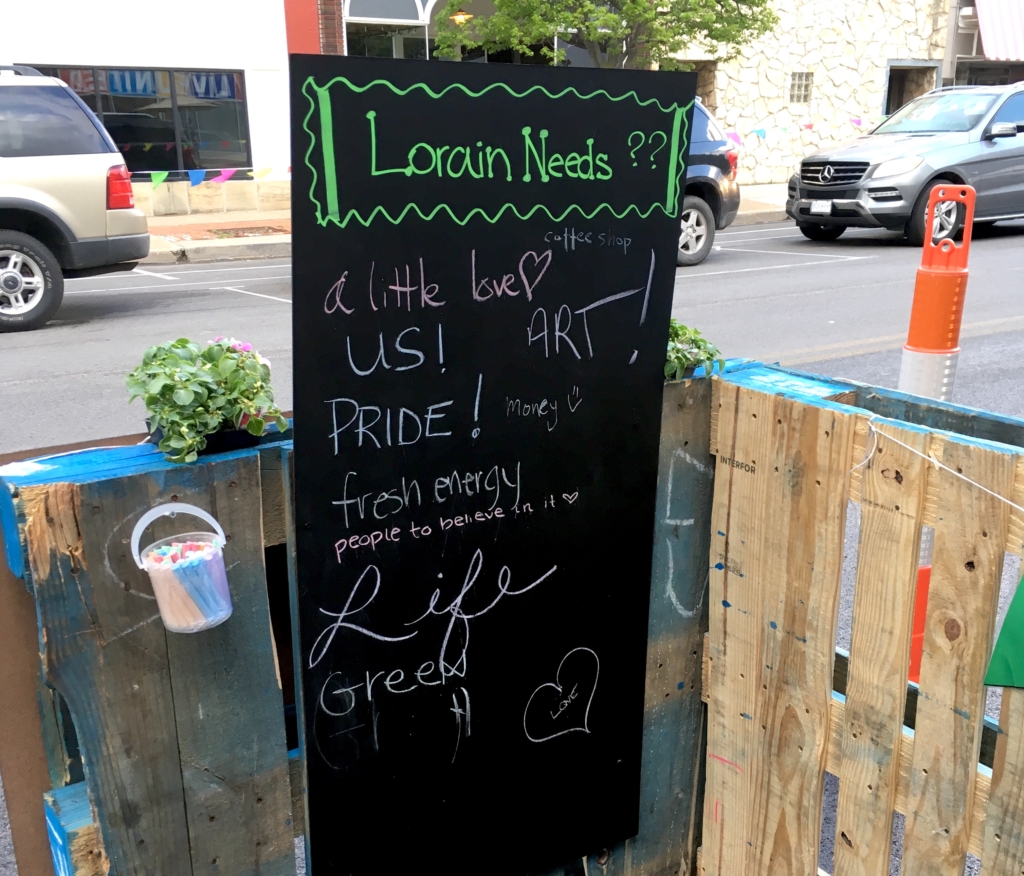 Lorain Needs ??
coffee shop
a little love
US!
ART!
PRIDE!
money
fresh energy
people to believe in it
Life
Green
LOVE
INTERFOR